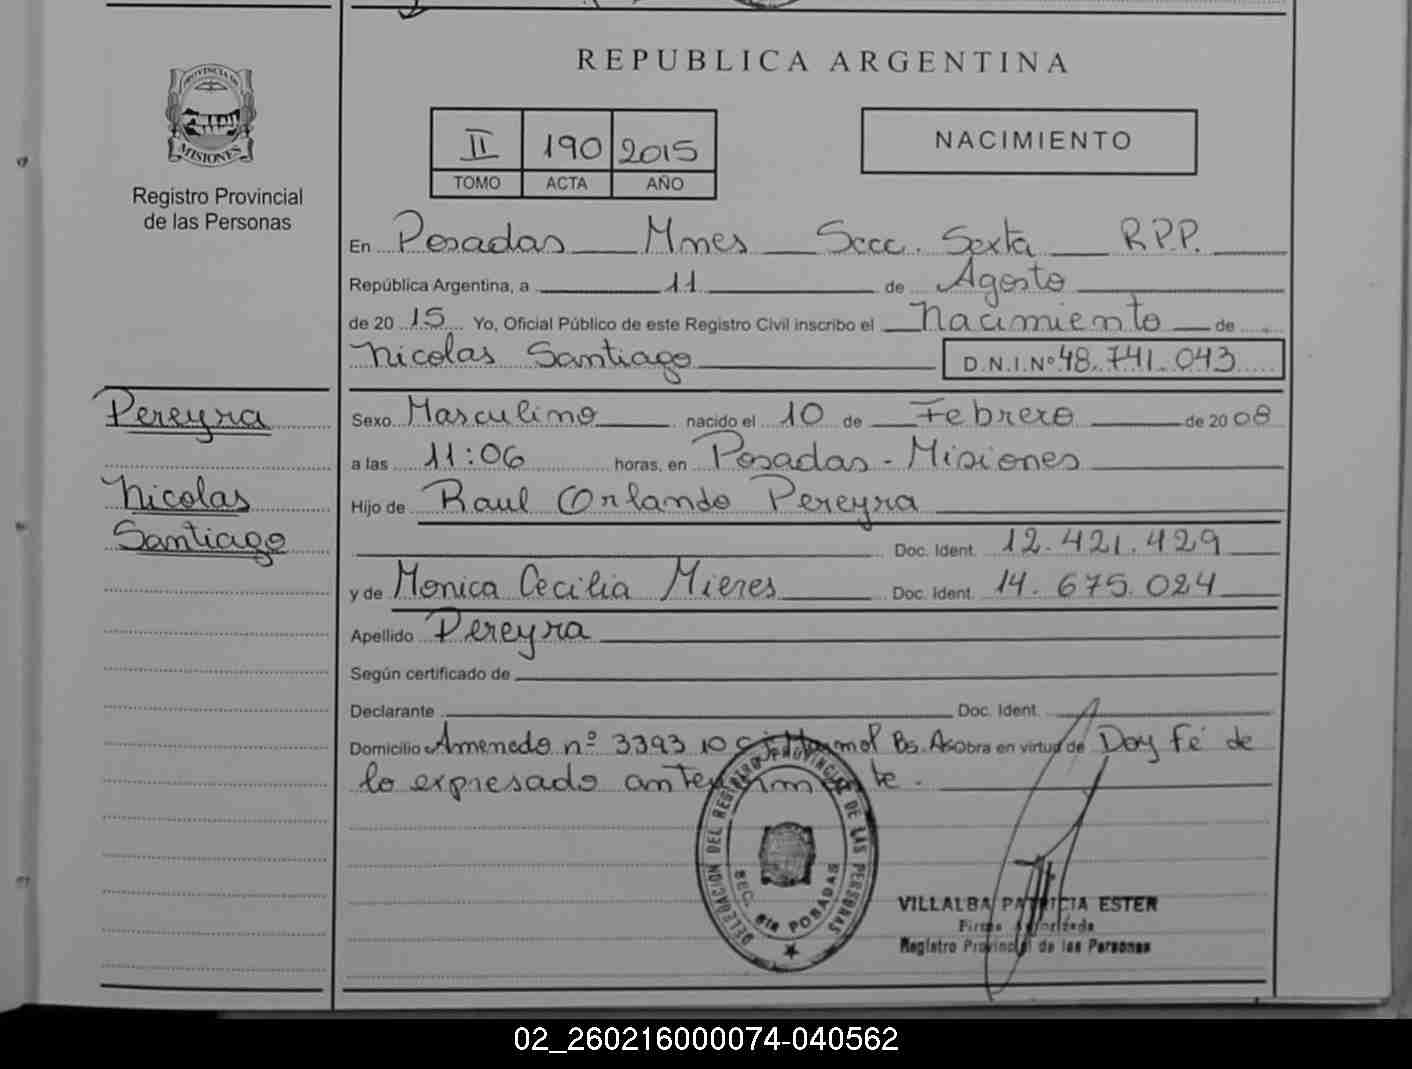 REPUBLICA ARGENTINA
PROVINCIA DE
MISIONES
Registro Provincial
de las Personas
II 190 2015
TOMO ACTA AÑO
NACIMIENTO
En Posadas Mnes Secc. Sexta R.P.P.
República Argentina, a 11 de Agosto
de 20 15 Yo, Oficial Público de este Registro Civil inscribo el Nacimiento de
Nicolas Santiago D.N.I.Nº 48.741.043
Pereyra
Nicolas
Santiago
Sexo Masculino nacido el 10 de Febrero de 20 08
a las 11:06 horas, en Posadas - Misiones
Hijo de Raul Orlando Pereyra
Doc. Ident. 12.421.429
y de Monica Cecilia Mieres Doc. Ident. 14.675.024
Apellido Pereyra
Según certificado de
Declarante Doc. Ident.
Domicilio nº 3393 Bs. As Obra en virtud de Doy Fé de
lo expresado
DELEGACION DEL REGISTRO PROVINCIAL DE LAS PERSONAS
SEC. 6ta POSADAS
VILLALBA PATRICIA ESTER
Firma Autorizada
Registro Provincial de las Personas
02_260216000074-040562